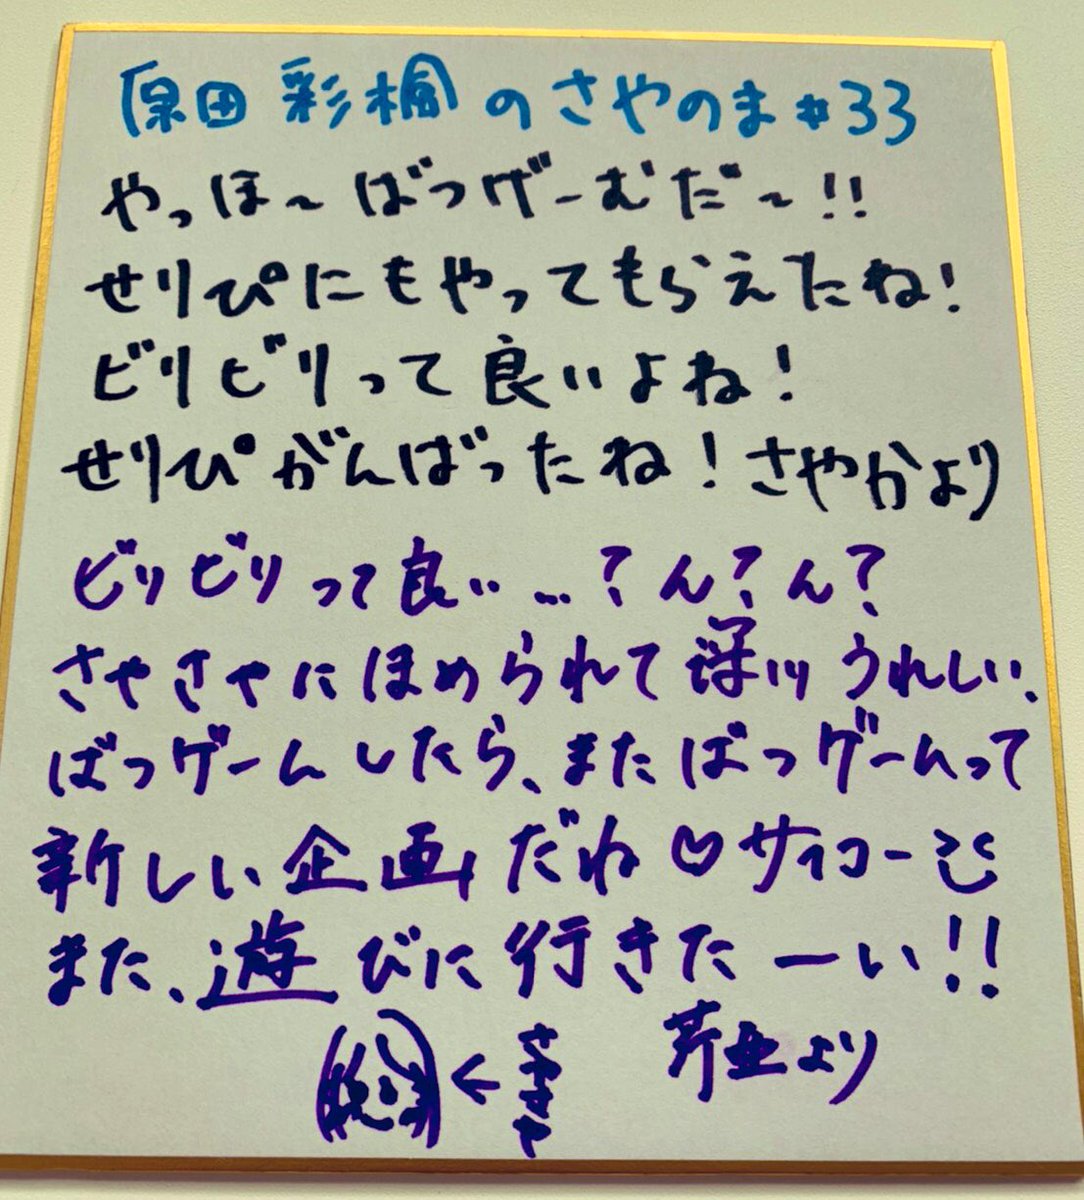 原田 彩楓のさやのま#33
やっほ～ばつげーむだ～!!
せりぴにもやってもらえたね!
ビリビリって良いよね!
せりぴがんばったね!さやかより
ビリビリって良い…?ん?ん?
さやさやにほめられて うれしい、
ばつゲームしたら、またばつゲームって
新しい企画だね♡サイコー
また、遊びに行きたーい!!
←さやさや
芹亜より